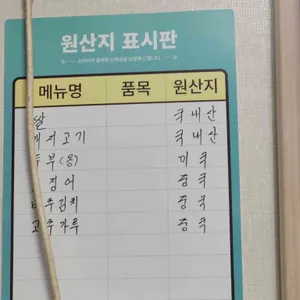 원산지 표시판
메뉴명 품목 원산지
쌀 국내산
고기 국내산
두부(콩) 미국
징어 중국
배추김치 중국
고추가루 중국